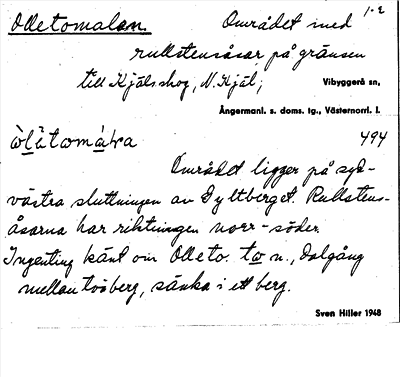 Olletomalen. Området med 1-2
rullstensåsar på gränsen
till Kjälsskog, N. Kjäl; Vibyggerå sn,
Ångermanl. s. doms. tg., Västernorrl. l.
494
Området ligger på syd-
västra sluttningen av Dyltberget. Rullstens-
åsarna har riktningen norr-söder.
Ingenting känt om Olleto. tω n., dalgång
mellan två berg, sänka i ett berg.
Sven Hiller 1948